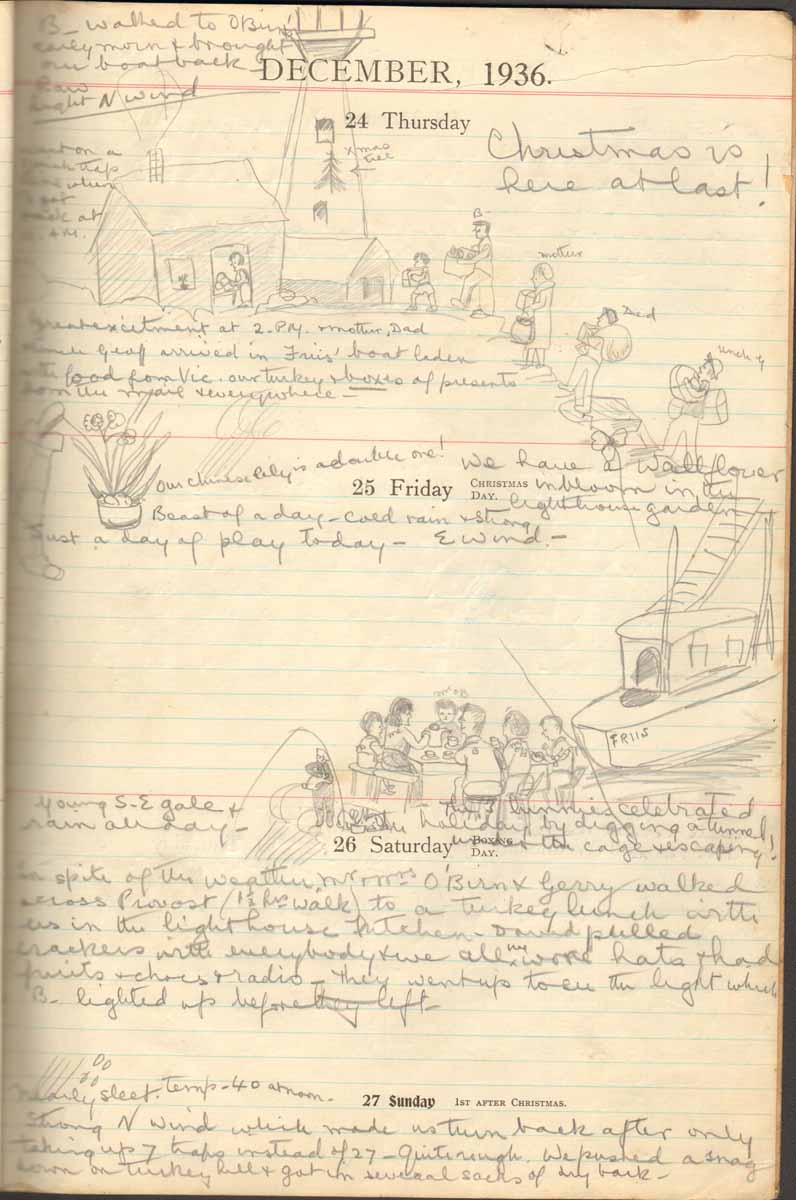 B- walked to O'Birn's
early morn & brought
our boat back -
Raw
light N wind
DECEMBER, 1936.
24 Thursday
Christmas is
here at last!
xmas
tree
on a
traps
when
at
B-
mother
Dad
Uncle G
Great excitment at 2-P.M. mother, Dad
Uncle Geoff arrived in Friis' boat laden
with food from Vic. our turkey & boxes of presents
from the mail & everywhere -
Our chinese lily is a double one!
We have a Wallflower
in bloom in the
lighthouse garden
25 Friday CHRISTMAS DAY.
Beast of a day - cold rain & strong
E Wind. -
Just a day of play today -
FR115
Mr O'B
Young S-E gale &
rain all day -
The 3 bunnies celebrated
the holidays by digging a tunnel
under the cage & escaping!
26 Saturday BOXING DAY.
In spite of the weather Mr & Mrs O'Birn & Gerry walked
across Provost (1½ hrs walk) to a turkey lunch with
us in the lighthouse kitchen - David pulled
crackers with everybody & we all wore hats & had
fruits & chocs & radio - They went up to see the light which
B- lighted up before they left -
Nearly sleet. temp - 40 at noon.
27 Sunday 1ST AFTER CHRISTMAS.
Strong N wind which made us turn back after only
taking up 7 traps instead of 27 - Quite rough. We pushed a snag
down on turkey hill & got in several sacks of dry bark -